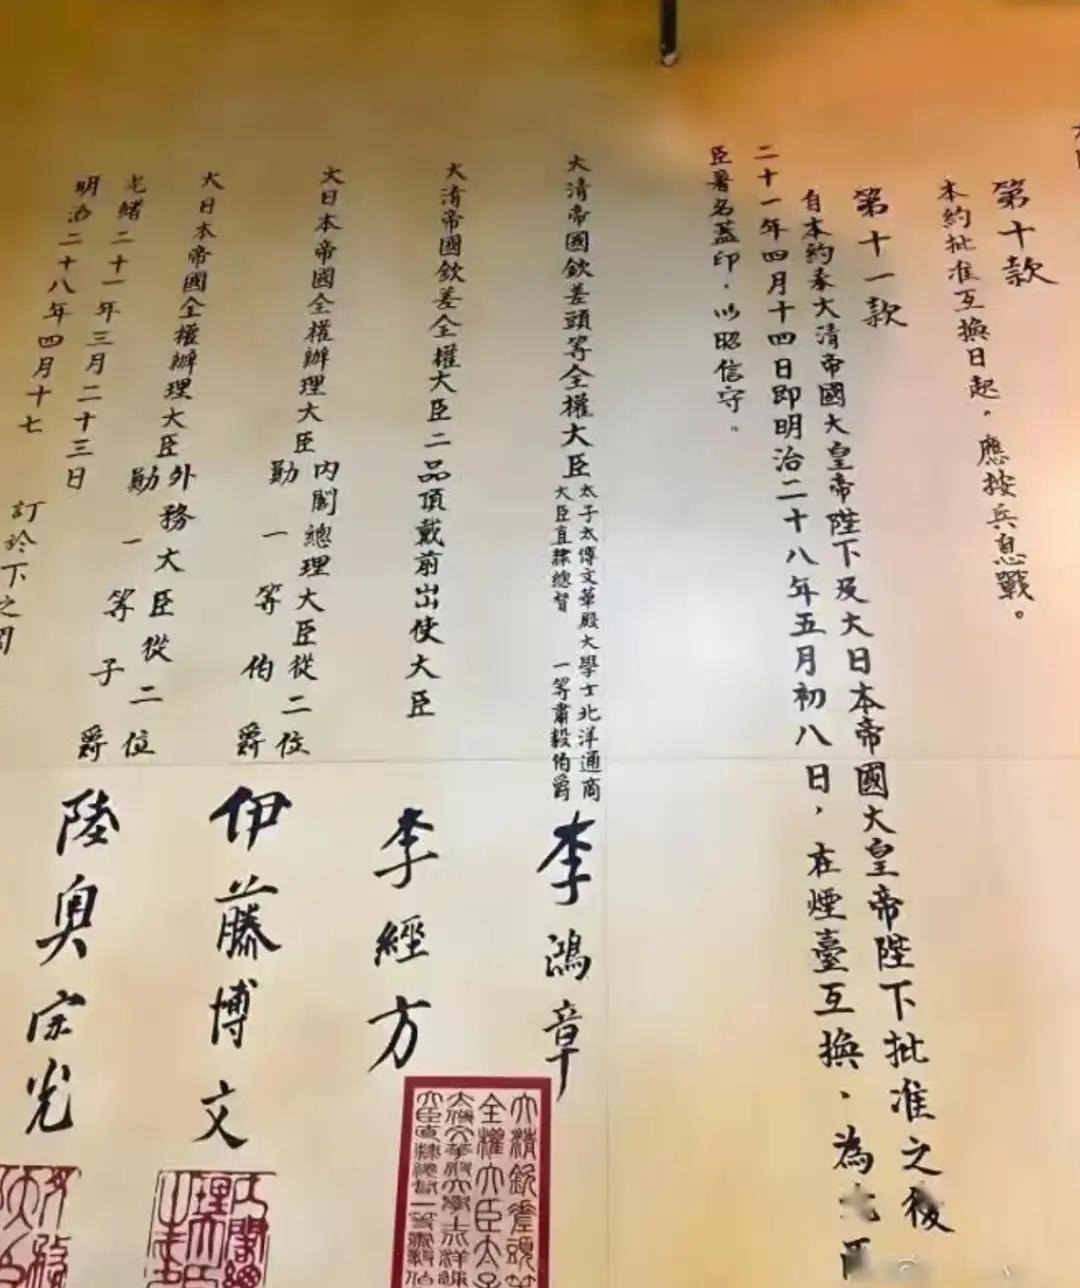 第十款
本約批准互換日起，應按兵息戰。
第十一款
自本約奉大清帝國大皇帝陛下及大日本帝國大皇帝陛下批准之後
二十一年四月十四日即明治二十八年五月初八日，在煙臺互換、為
臣署名蓋印，以昭信守。
大清帝國欽差頭等全權大臣
太子太傅文華殿大學士北洋通商
大臣直隸總督 一等肅毅伯爵
李鴻章
大清帝國欽差全權大臣二品頂戴前出使大臣
李經方
大日本帝國全權辦理大臣
內閣總理大臣從二位
勳一等伯爵
伊藤博文
大日本帝國全權辦理大臣
外務大臣從二位
勳一等子爵
陸奧宗光
光緒二十一年三月二十三日
明治二十八年四月十七
訂於下之
大清欽差頭等
全權大臣太子
太傅文華殿大學士北洋
大臣直隸總督一等肅毅伯